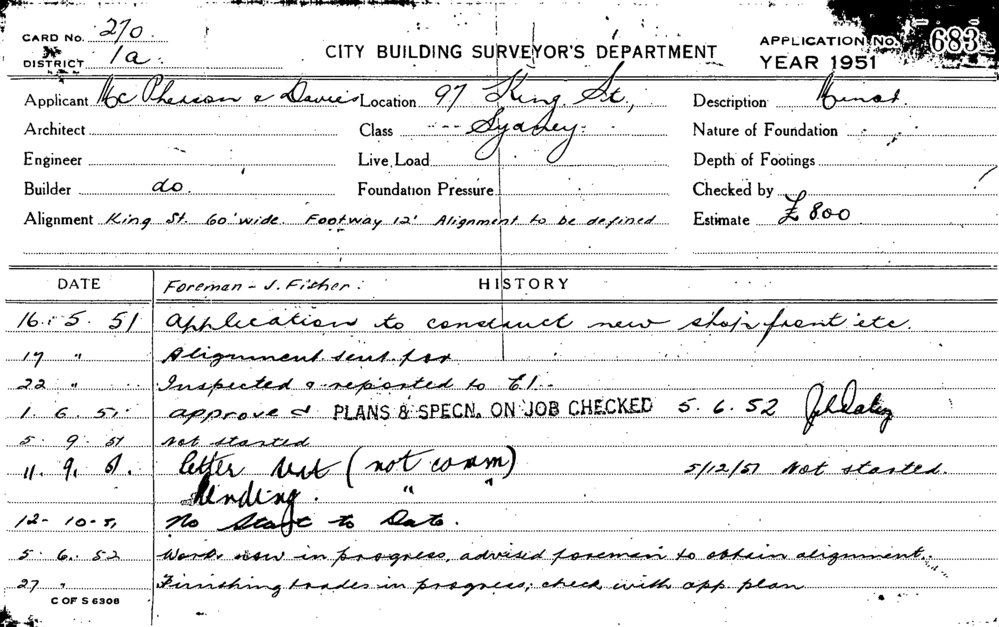 CARD No. 210
DISTRICT 1a
CITY BUILDING SURVEYOR'S DEPARTMENT
APPLICATION No. 683
YEAR 1951
Applicant McPherson & Davies Location 97 King St, Description Minor.
Architect Class Sydney. Nature of Foundation
Engineer Live Load Depth of Footings
Builder do. Foundation Pressure Checked by
Alignment King St. 60' wide. Footway 12' Alignment to be defined Estimate £800
DATE Foreman - J. Fisher. HISTORY
16. 5. 51 Application to construct new shop front etc.
17 " Alignment sent for
22 " Inspected & reported to
1. 6. 51. approved PLANS & SPECN. ON JOB CHECKED 5. 6. 52
5. 9. 51 Not started
11. 9. 51. letter sent (not comm) 5/12/51 Not started.
Pending. " "
12-10-51 No Start to Date.
5. 6. 52 Work now in progress, advised foreman to obtain alignment.
27 " Finishing trades in progress; check with app. plan
C OF S 6308